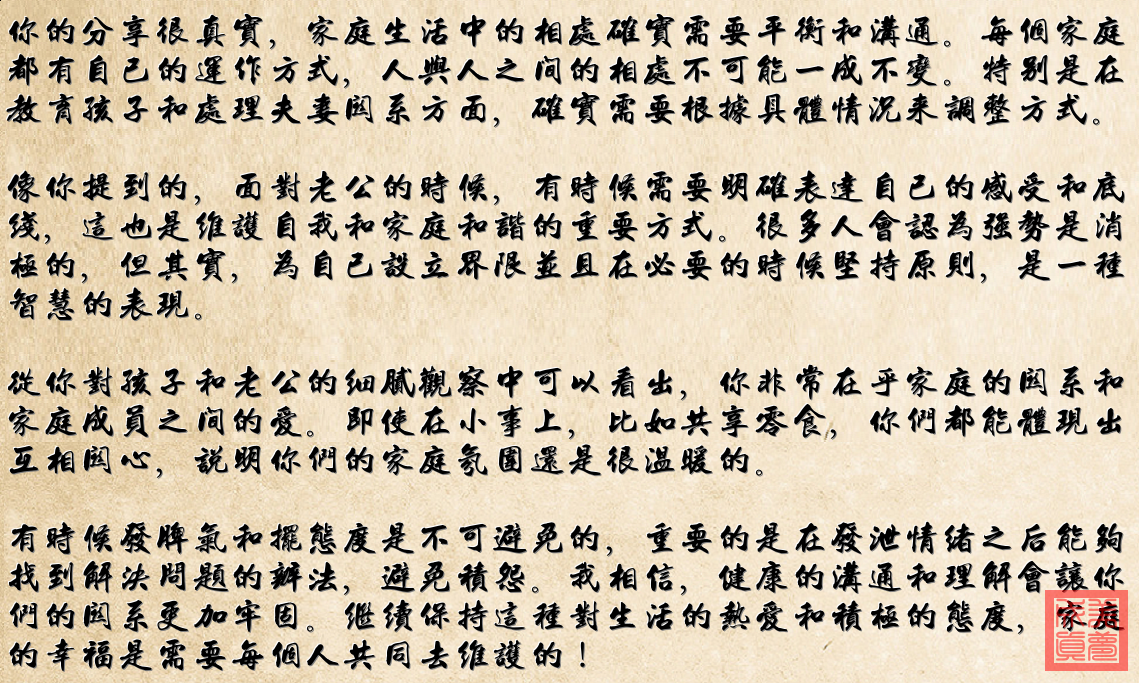 你的分享很真實，家庭生活中的相處確實需要平衡和溝通。每個家庭
都有自己的運作方式，人與人之间的相處不可能一成不變。特别是在
教育孩子和處理夫妻関系方面，確實需要根據具體情況来調整方式。
像你提到的，面對老公的時候，有時候需要明確表達自己的感受和底
綫，這也是維護自我和家庭和諧的重要方式。很多人會認為強勢是消
極的，但其實，為自己設立界限並且在必要的時候堅持原則，是一種
智慧的表現。
從你對孩子和老公的细膩觀察中可以看出，你非常在乎家庭的関系和
家庭成員之间的愛。即使在小事上，比如共享零食，你們都能體現出
互相関心，説明你們的家庭氛圍還是很温暖的。
有時候發脾氣和擺態度是不可避免的，重要的是在發泄情緒之后能夠
找到解決問題的辦法，避免積怨。我相信，健康的溝通和理解會讓你
們的関系更加牢固。继續保持這種對生活的熱愛和積極的態度，家庭
的幸福是需要每個人共同去維護的！